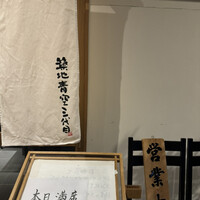 築地青空三代目
本日満席
営業中